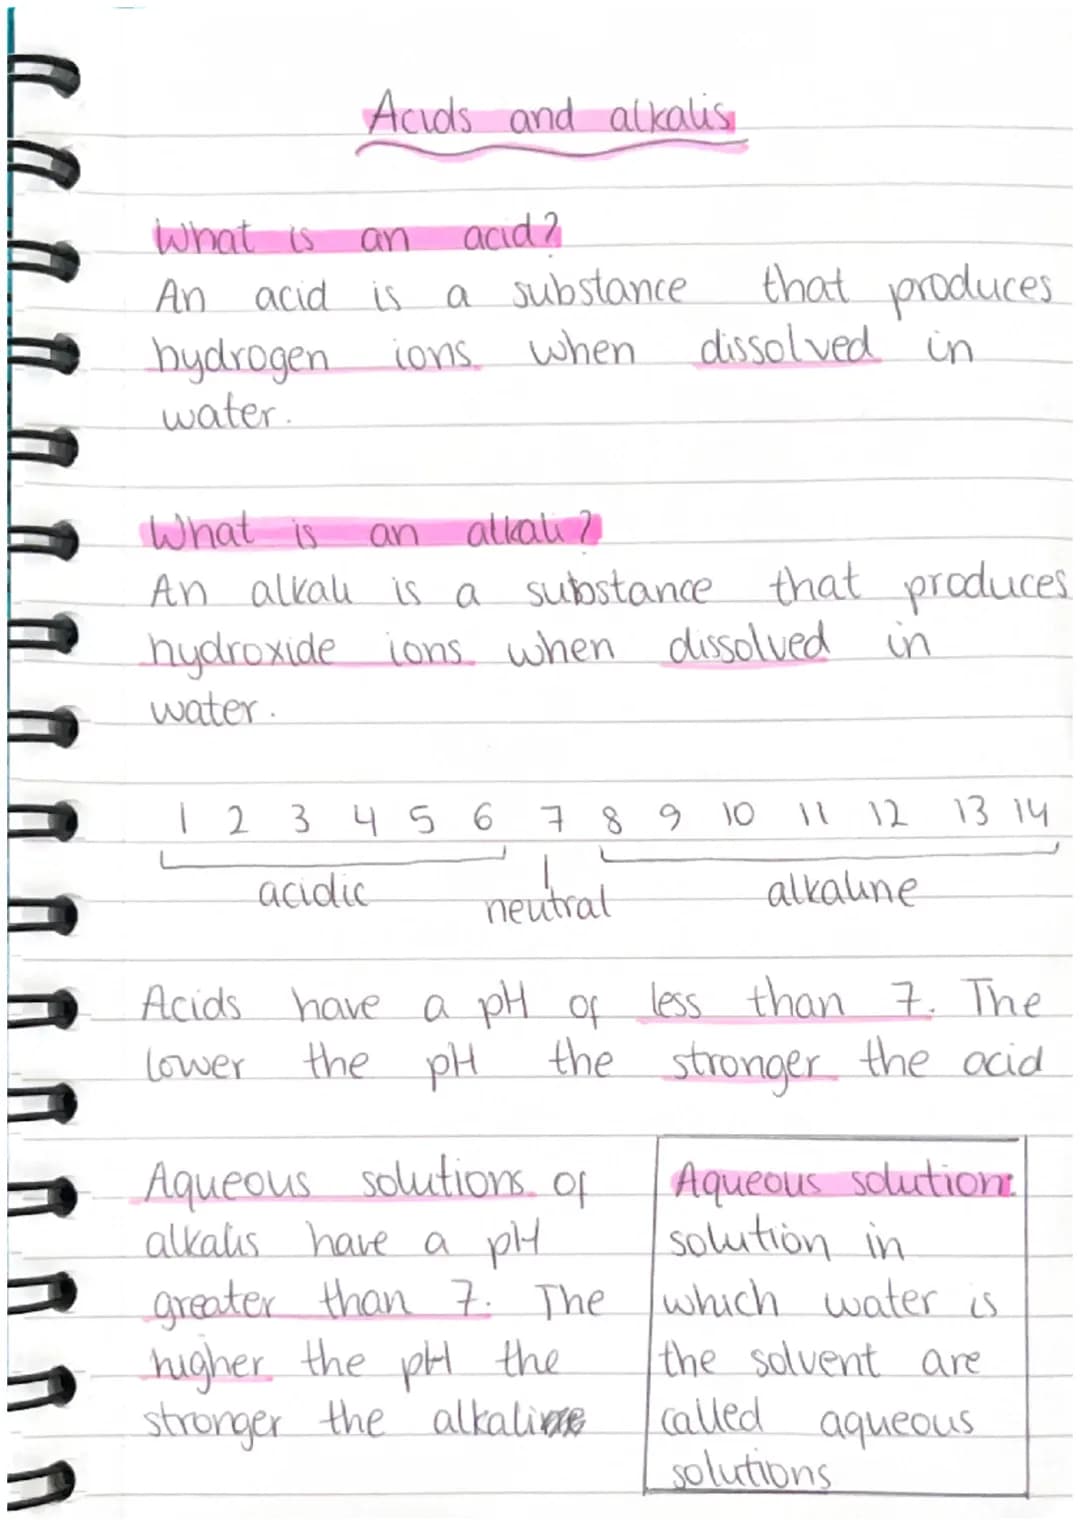 Acids and alkalis
What is an acid?
An acid is a substance that produces
hydrogen ions when dissolved in
water.
What is an alkali?
An alkali is a substance that produces
hydroxide ions when dissolved in
water.
1 2 3 4 5 6 7 8 9 10 11 12 13 14
acidic neutral alkaline
Acids have a pH of less than 7. The
lower the pH the stronger the acid
Aqueous solutions of
alkalis have a pH
greater than 7. The
higher the pH the
stronger the
Aqueous solution:
solution in
which water is
the solvent are
called aqueous
solutions